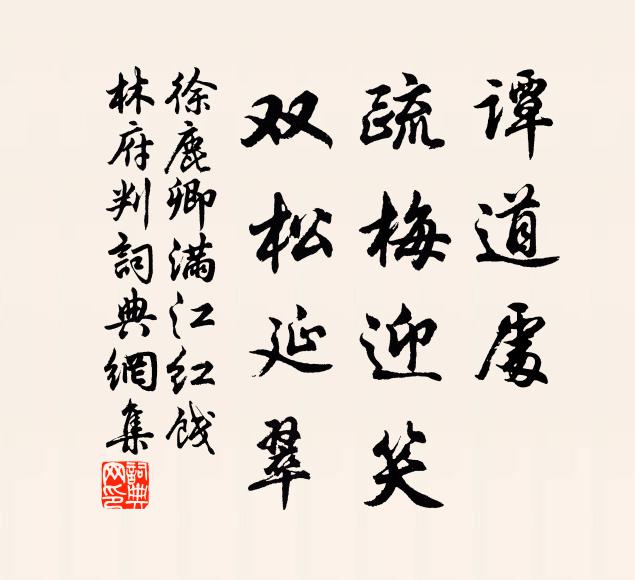 谭道處
疏梅迎笑
双松延翠
徐鹿卿满江红饯
林府判詞典網集
詞典网印